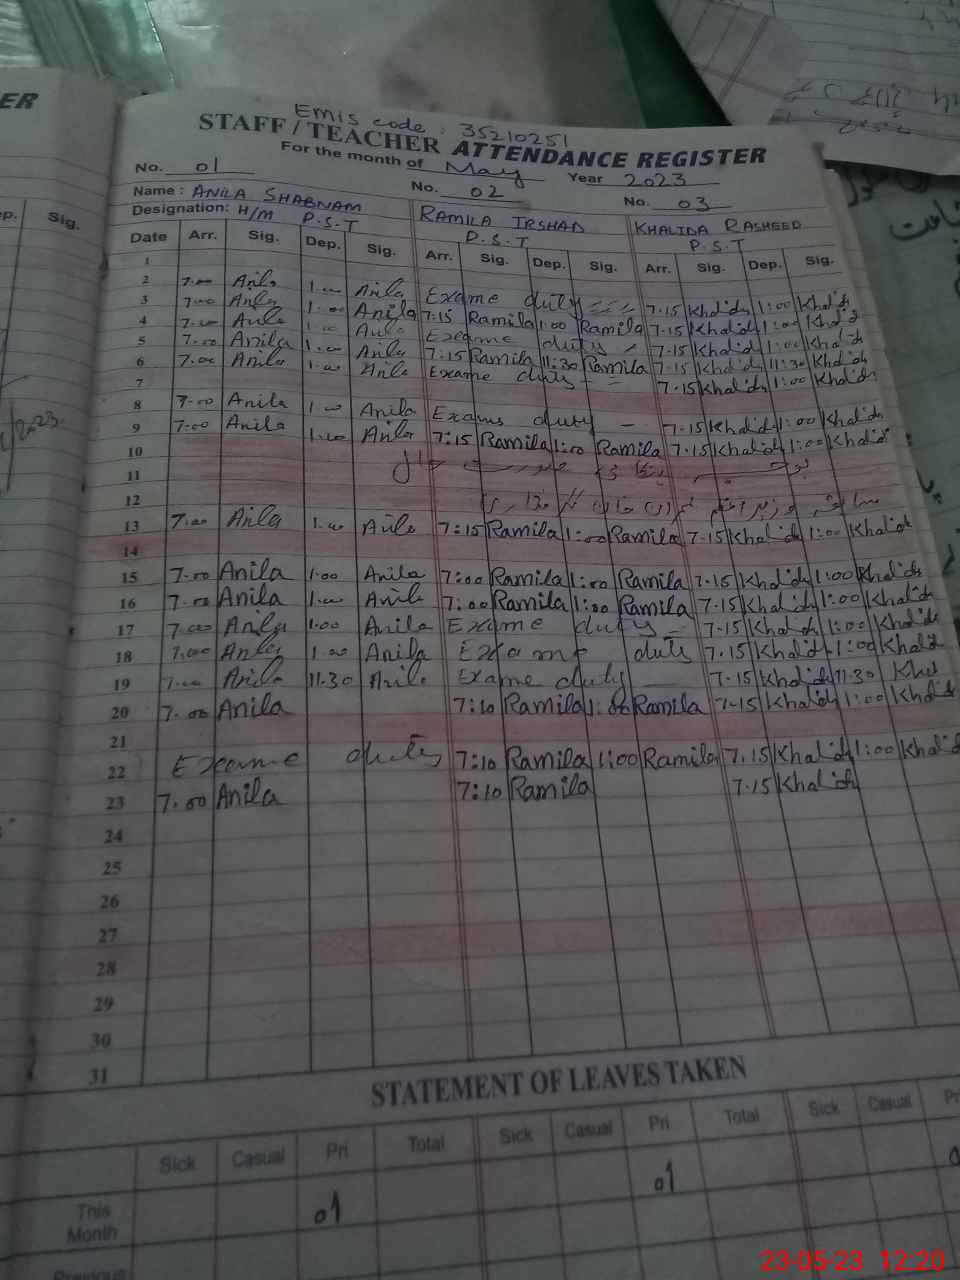 ER
Emis code : 35210251
STAFF / TEACHER ATTENDANCE REGISTER
For the month of May Year 2023
No. 01 No. 02 No. 03
Name : ANILA SHABNAM RAMILA IRSHAD KHALIDA RASHEED
Designation: H/M P.S.T P.S.T P.S.T
Date Arr. Sig. Dep. Sig. Arr. Sig. Dep. Sig. Arr. Sig. Dep. Sig.
1
2 7.00 Anila 1.00 Anila Exame duty 7.15 Khalida 1:00 Khalida
3 7.00 Anila 1.00 Anila 7:15 Ramila 1:00 Ramila 7.15 Khalida 1:00 Khalida
4 7.00 Anila 1.00 Anila Exame duty 7.15 Khalida 1:00 Khalida
5 7.00 Anila 1.00 Anila 7:15 Ramila 11:30 Ramila 7.15 Khalida 11:30 Khalida
6 7.00 Anila 1.00 Anila Exame duty 7.15 Khalida 1:00 Khalida
7
8 7.00 Anila 1.00 Anila Exams duty 7.15 Khalida 1:00 Khalida
9 7.00 Anila 1.00 Anila 7:15 Ramila 1:00 Ramila 7.15 Khalida 1:00 Khalida
10
11
12
13 7.00 Anila 1.00 Anila 7:15 Ramila 1:00 Ramila 7.15 Khalida 1:00 Khalida
14
15 7.00 Anila 1.00 Anila 7:00 Ramila 1:00 Ramila 7.15 Khalida 1:00 Khalida
16 7.00 Anila 1.00 Anila 7:00 Ramila 1:00 Ramila 7.15 Khalida 1:00 Khalida
17 7.00 Anila 1.00 Anila Exame duty 7.15 Khalida 1:00 Khalida
18 7.00 Anila 1.00 Anila Exame duty 7.15 Khalida 1:00 Khalida
19 7.00 Anila 11.30 Anila Exame duty 7.15 Khalida 11.30 Khal
20 7.00 Anila 7:10 Ramila 1:00 Ramila 7.15 Khalida 1:00 Khalid
21
22 Exame duty 7:10 Ramila 1:00 Ramila 7.15 Khalida 1:00 Khalid
23 7.00 Anila 7:10 Ramila 7.15 Khalida
24
25
26
27
28
29
30
31
STATEMENT OF LEAVES TAKEN
Sick Casual Pri Total Sick Casual Pri Total Sick Casual
This Month 01 01
23-05-23 12:20